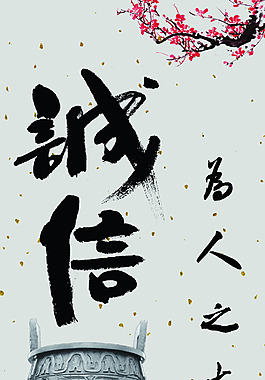 誠信
為人之